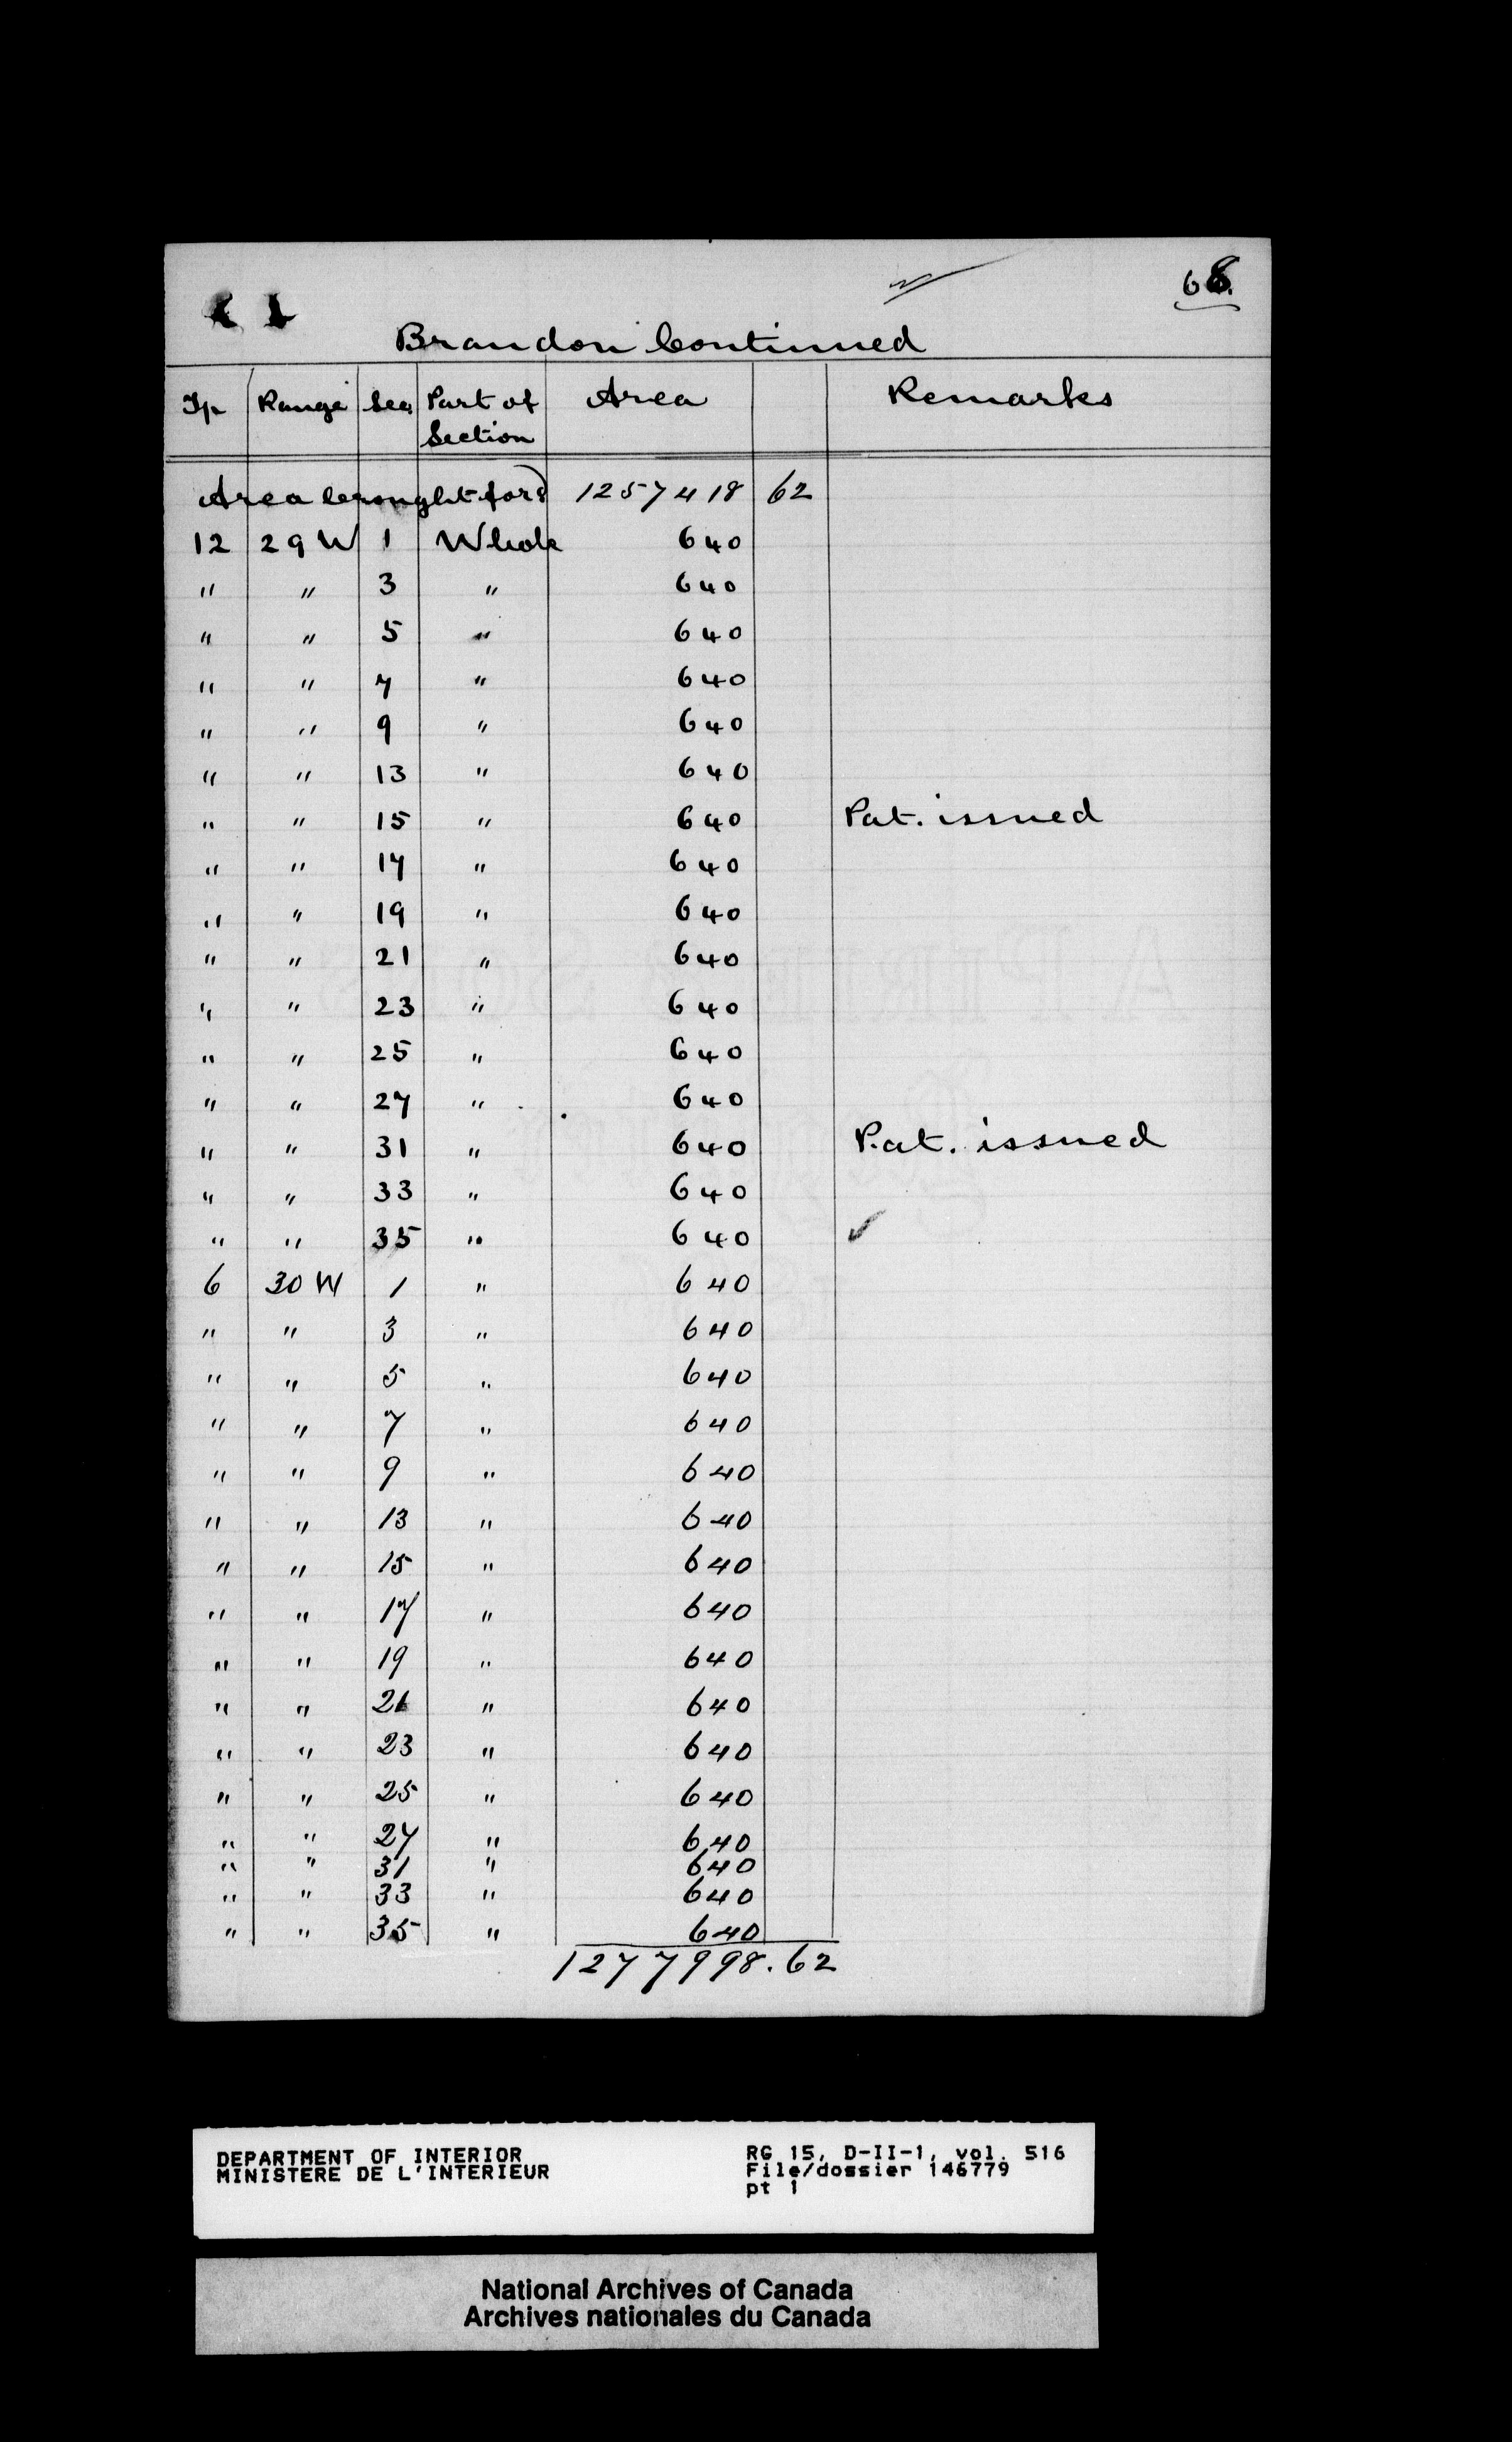 68.
Brandon Continued
Tp Range Sec Part of Section Area Remarks
Area brought ford 1257418 62
12 29 W 1 Whole 640
" " 3 " 640
" " 5 " 640
" " 7 " 640
" " 9 " 640
" " 13 " 640
" " 15 " 640 Pat. issued
" " 17 " 640
" " 19 " 640
" " 21 " 640
" " 23 " 640
" " 25 " 640
" " 27 " 640
" " 31 " 640 Pat. issued
" " 33 " 640
" " 35 " 640 ✓
6 30 W 1 " 640
" " 3 " 640
" " 5 " 640
" " 7 " 640
" " 9 " 640
" " 13 " 640
" " 15 " 640
" " 17 " 640
" " 19 " 640
" " 21 " 640
" " 23 " 640
" " 25 " 640
" " 27 " 640
" " 31 " 640
" " 33 " 640
" " 35 " 640
1277998.62
DEPARTMENT OF INTERIOR
MINISTERE DE L'INTERIEUR
RG 15, D-II-1, vol. 516
File/dossier 146779
pt 1
National Archives of Canada
Archives nationales du Canada